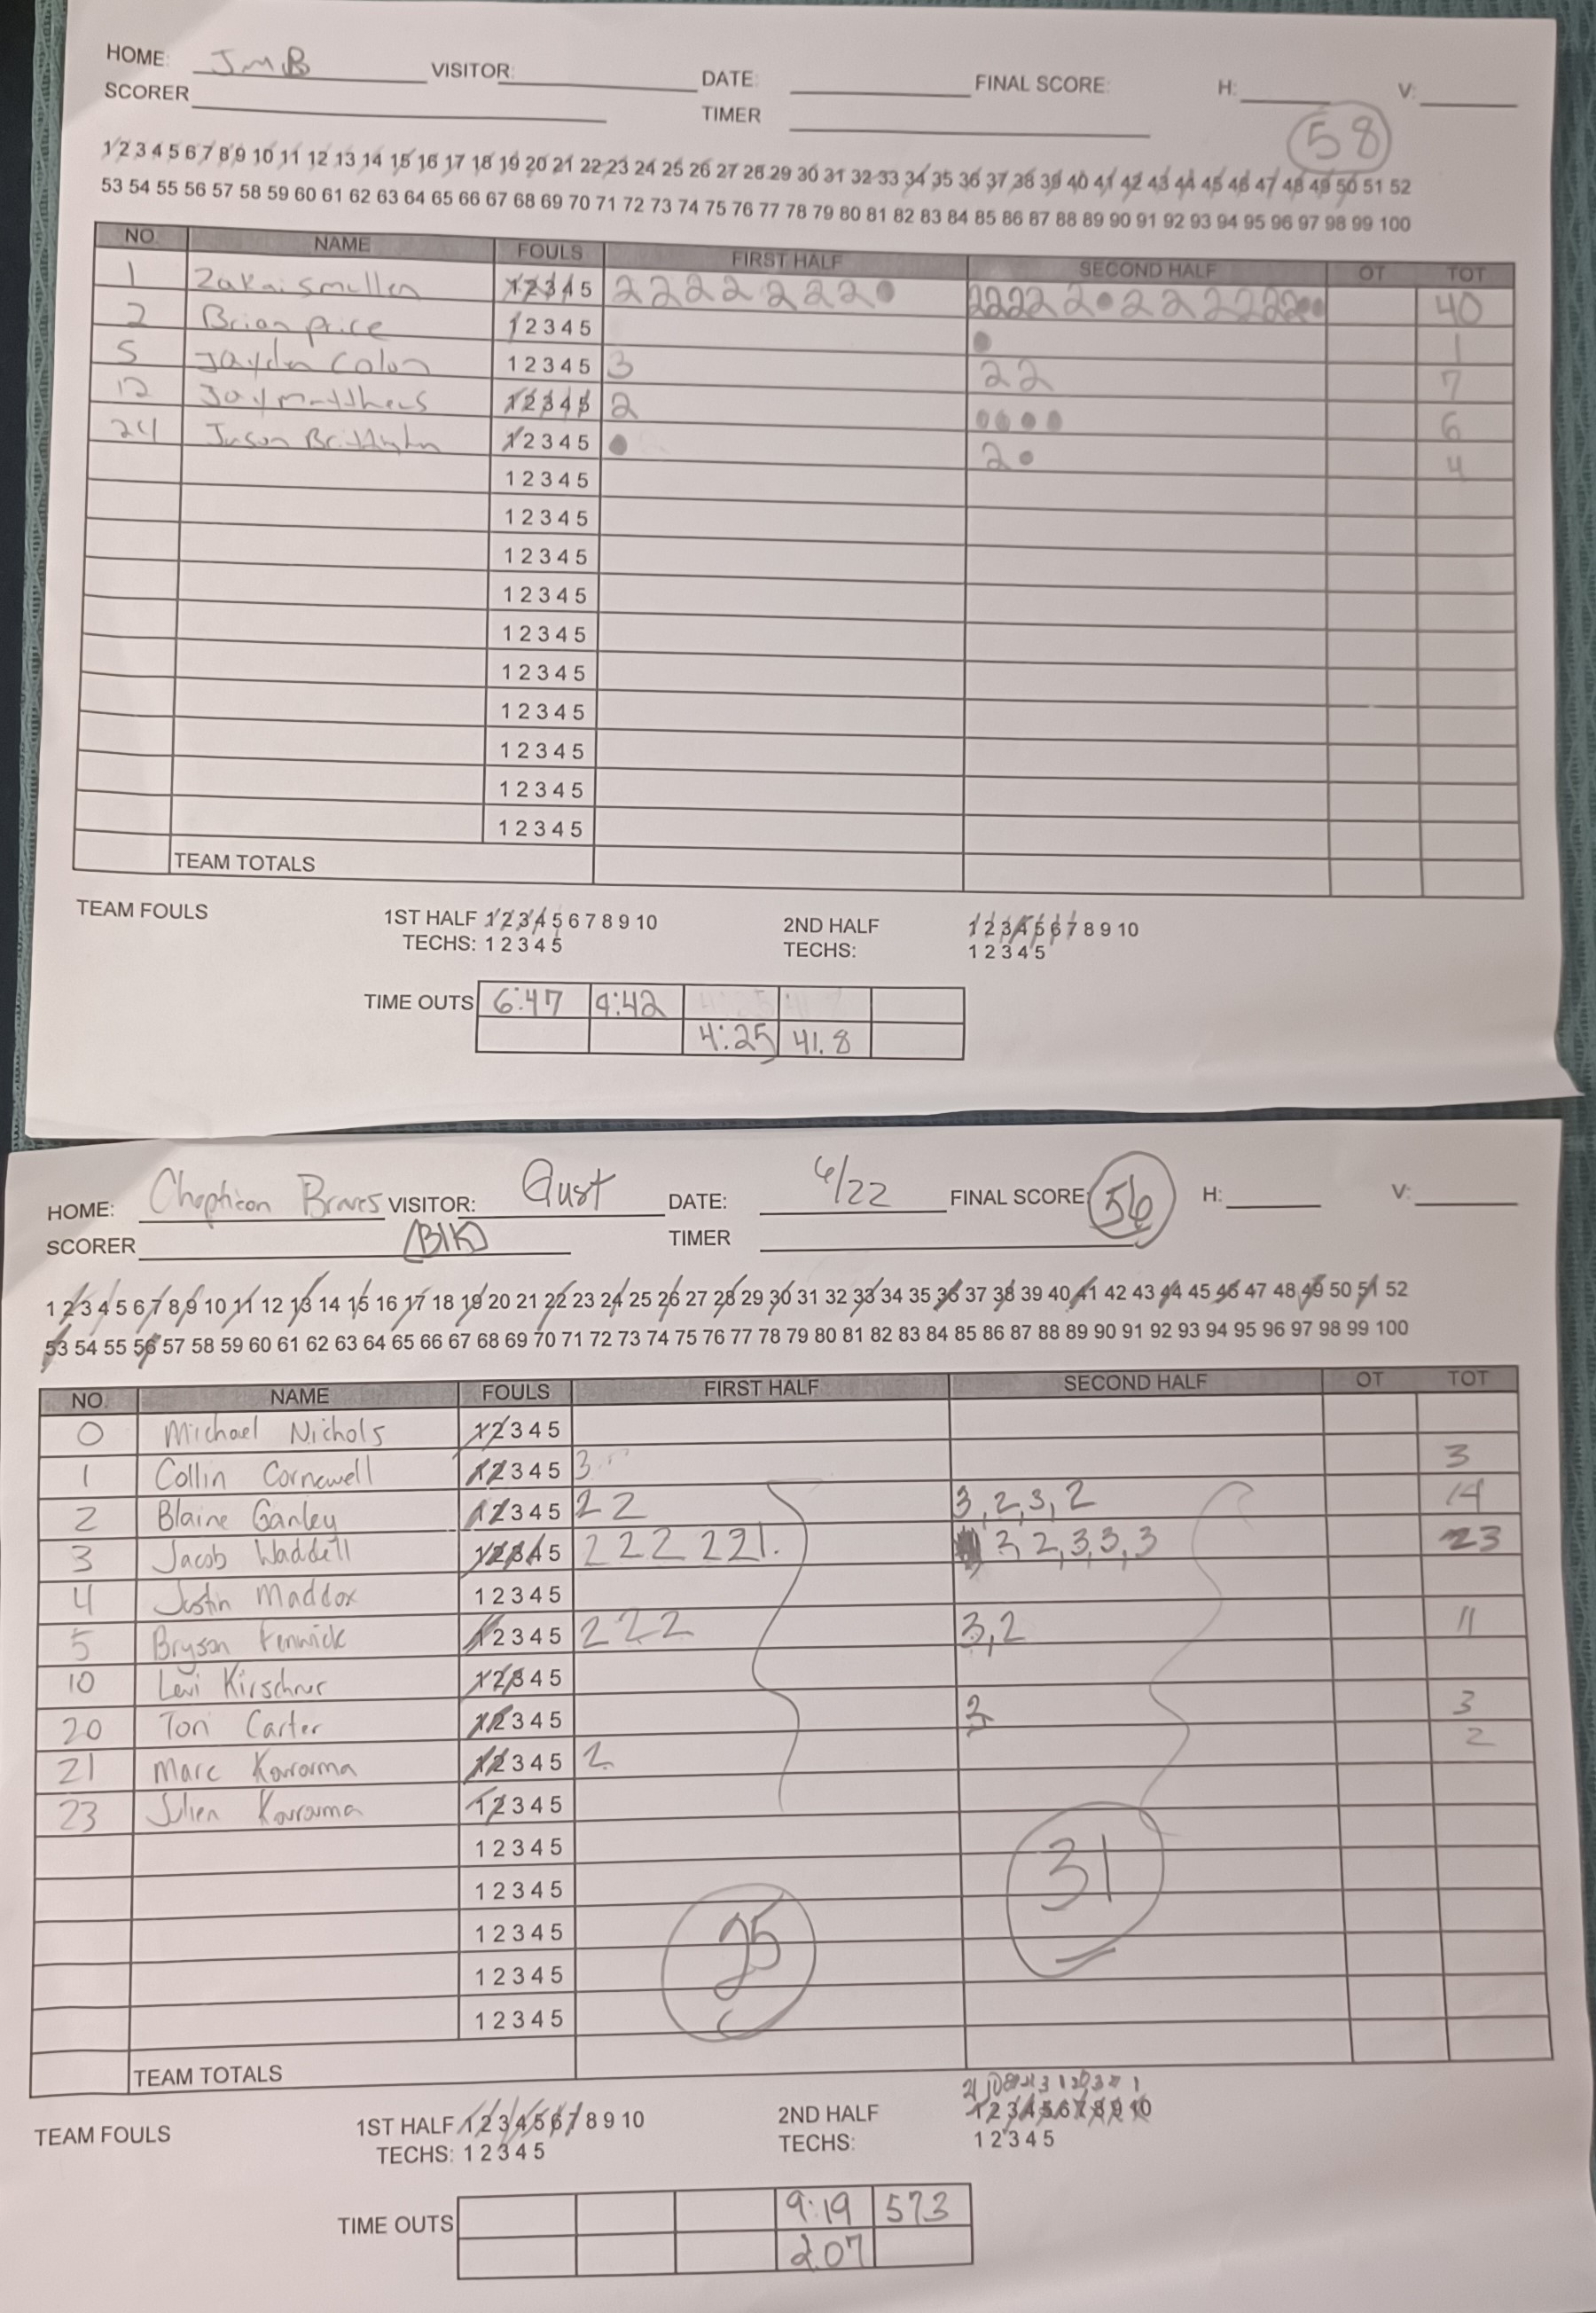 HOME: JMB VISITOR: DATE: FINAL SCORE: H: V:
SCORER TIMER 58
1 2 3 4 5 6 7 8 9 10 11 12 13 14 15 16 17 18 19 20 21 22 23 24 25 26 27 28 29 30 31 32 33 34 35 36 37 38 39 40 41 42 43 44 45 46 47 48 49 50 51 52
53 54 55 56 57 58 59 60 61 62 63 64 65 66 67 68 69 70 71 72 73 74 75 76 77 78 79 80 81 82 83 84 85 86 87 88 89 90 91 92 93 94 95 96 97 98 99 100
NO. NAME FOULS FIRST HALF SECOND HALF OT TOT
1 Zakai Smullen 1 2 3 4 5 2 2 2 2 2 2 2 40
2 Brian Price 1 2 3 4 5 1
5 Jayden Colon 1 2 3 4 5 3 2 2 7
12 Jay Matthews 1 2 3 4 5 2 6
24 Jason 1 2 3 4 5 2 4
1 2 3 4 5
1 2 3 4 5
1 2 3 4 5
1 2 3 4 5
1 2 3 4 5
1 2 3 4 5
1 2 3 4 5
1 2 3 4 5
1 2 3 4 5
1 2 3 4 5
TEAM TOTALS
TEAM FOULS 1ST HALF 1 2 3 4 5 6 7 8 9 10 2ND HALF 1 2 3 4 5 6 7 8 9 10
TECHS: 1 2 3 4 5 TECHS: 1 2 3 4 5
TIME OUTS 6:47 9:42
4:25 41.8
HOME: Chopticon Braves VISITOR: Qust DATE: 6/22 FINAL SCORE: 56 H: V:
SCORER (BLK) TIMER
1 2 3 4 5 6 7 8 9 10 11 12 13 14 15 16 17 18 19 20 21 22 23 24 25 26 27 28 29 30 31 32 33 34 35 36 37 38 39 40 41 42 43 44 45 46 47 48 49 50 51 52
53 54 55 56 57 58 59 60 61 62 63 64 65 66 67 68 69 70 71 72 73 74 75 76 77 78 79 80 81 82 83 84 85 86 87 88 89 90 91 92 93 94 95 96 97 98 99 100
NO. NAME FOULS FIRST HALF SECOND HALF OT TOT
0 Michael Nichols 1 2 3 4 5
1 Collin Cornewell 1 2 3 4 5 3 3
2 Blaine Ganley 1 2 3 4 5 2 2 3,2,3,2 14
3 Jacob Waddell 1 2 3 4 5 2 2 2 2 2 1. 2,3,3,3 23
4 Justin Maddox 1 2 3 4 5
5 Bryson Fenwick 1 2 3 4 5 2 2 2 3,2 11
10 Levi Kirschner 1 2 3 4 5
20 Tori Carter 1 2 3 4 5 3 3
21 Marc Kararma 1 2 3 4 5 2 2
23 Julien Kararma 1 2 3 4 5
1 2 3 4 5 31
1 2 3 4 5
1 2 3 4 5 25
1 2 3 4 5
1 2 3 4 5
TEAM TOTALS
TEAM FOULS 1ST HALF 1 2 3 4 5 6 7 8 9 10 2ND HALF 1 2 3 4 5 6 7 8 9 10
TECHS: 1 2 3 4 5 TECHS: 1 2 3 4 5
TIME OUTS 9:19 57.3
2.07